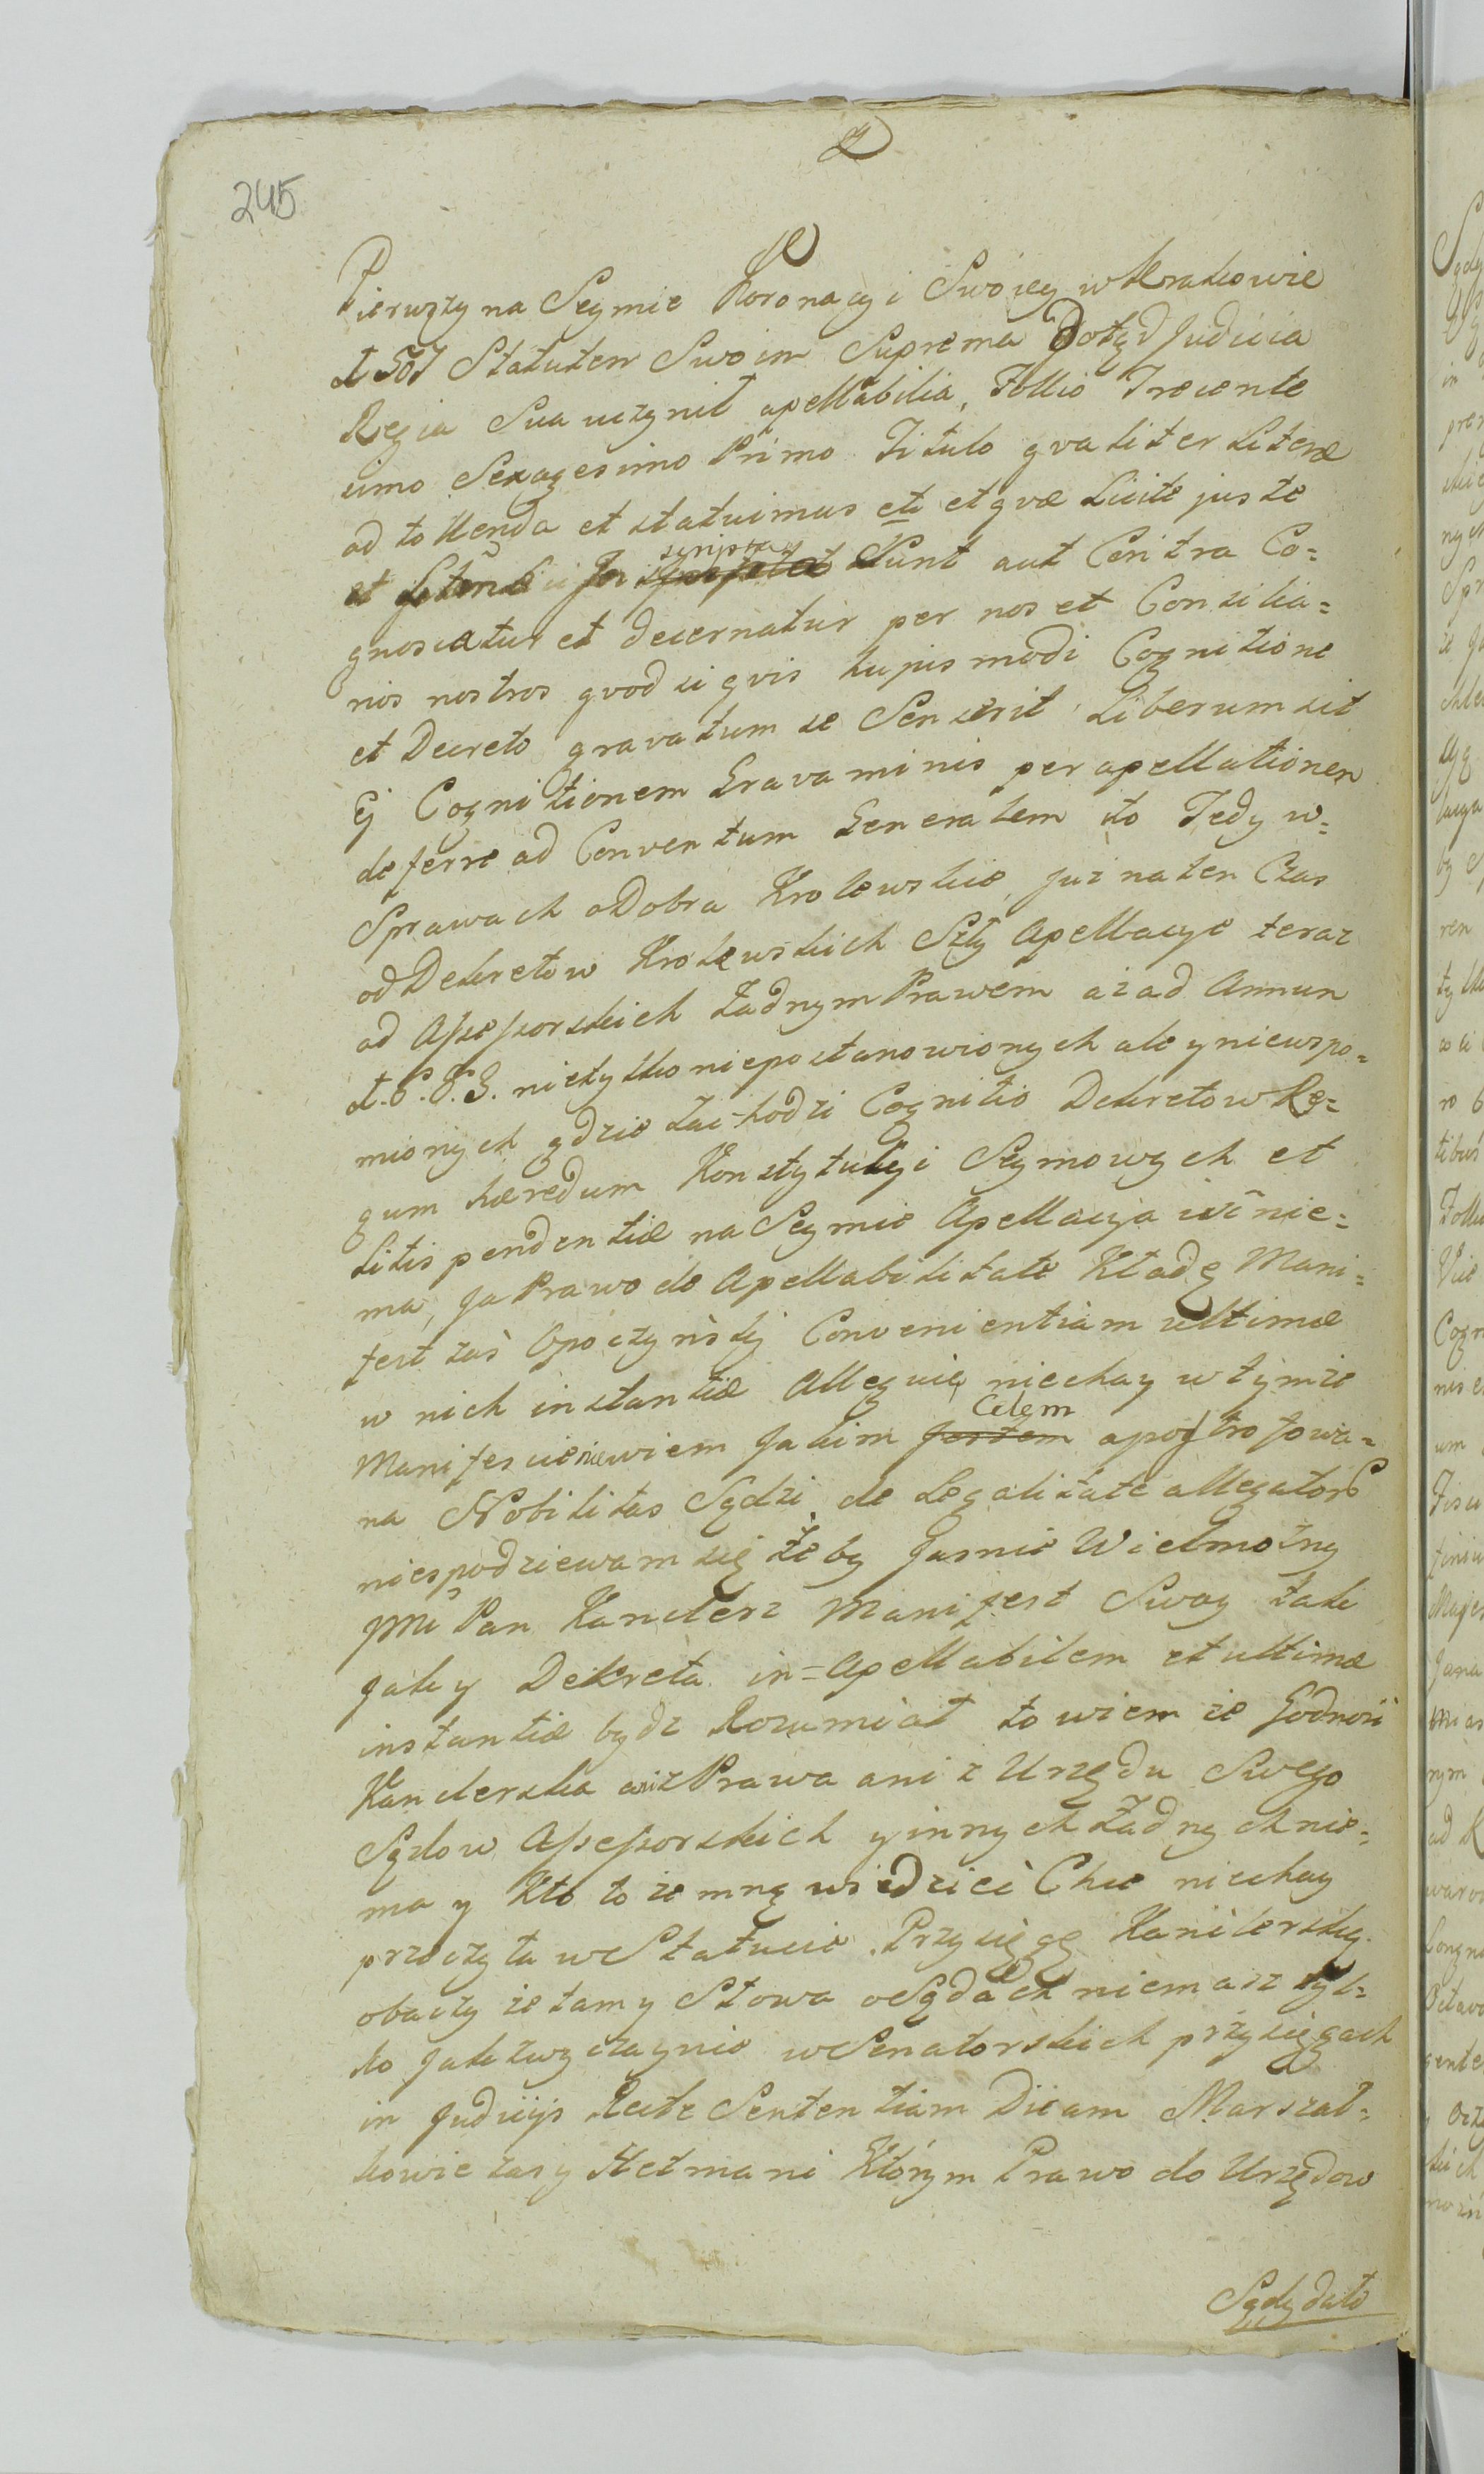 245
2
Pierwszy na Seymie Koronacyi Swoiey w Krakowie
1507 Statutem Swoim Suprema Dotąd Judicia
Regia Sua uczynił apellabilia, Follio Trecente
simo Sexagesimo Primo Titulo qvaliter Literæ
ad tollenda et statuimus etc et qvæ Licite juste
et scripta Sunt aut Contra Co=
gnoscatur et decernatur per nos et Consilia=
rios nostros qvod si qvis hujusmodi Cognitione
et Decreto gravatum se Senserit Liberum sit
Ej Cognitionem Gravaminis per apellationem
deferre ad Conventum Generalem ito Tedy w=
Sprawach o Dobra Krolewskie, juz na ten Czas
od Dekretow Krolewskich Szły Apellacye teraz
od Assessorskich Żadnym Prawem az ad Annum
nietylko niepostanowionych ale y niewspo=
mionych gdzie zachodzi Cognitio Dekretow Re=
gum hæredum Konstytucyi Seymowych et
Litis pendentiæ na Seymie Apellacyja iść nie=
ma, Ja Prawo de Apellabilitate Kładę Mani=
fest zaś Opoczyński Convenientiam ultimæ
w nich instantiæ Alleguie niechay w tymże
Manifescie niewiem Jakim Jestem Celem apostrofowa=
na Nobilitas Sądzi de Legalitate allegatorū
niespodziewam się żeby Jasnie Wielmożny
Jmć Pan Kanclerz Manifest Swoy tak
Jak y Dekreta in=Apellabilem et ultimæ
instantiæ bydz Rozumiał to wiem ze Godnosć
Kanclerska ani z Prawa ani z Urzędu Swego
Sądow Assessorskich y innych Żadnych nie=
ma y Kto to ze mną wiedzieć Chce niechay
przeczyta w Statucie Przysięgę Kanclerską
obaczy ze tam y Słowa o Sądach niemasz tyl=
ko Jak zwyczaynie w Senatorskich przysięgach
in Judicijs Recte Sententiam Dicam Marszał=
kowie zas y Hetmani Którym Prawo do Urzędow
Sądy dało